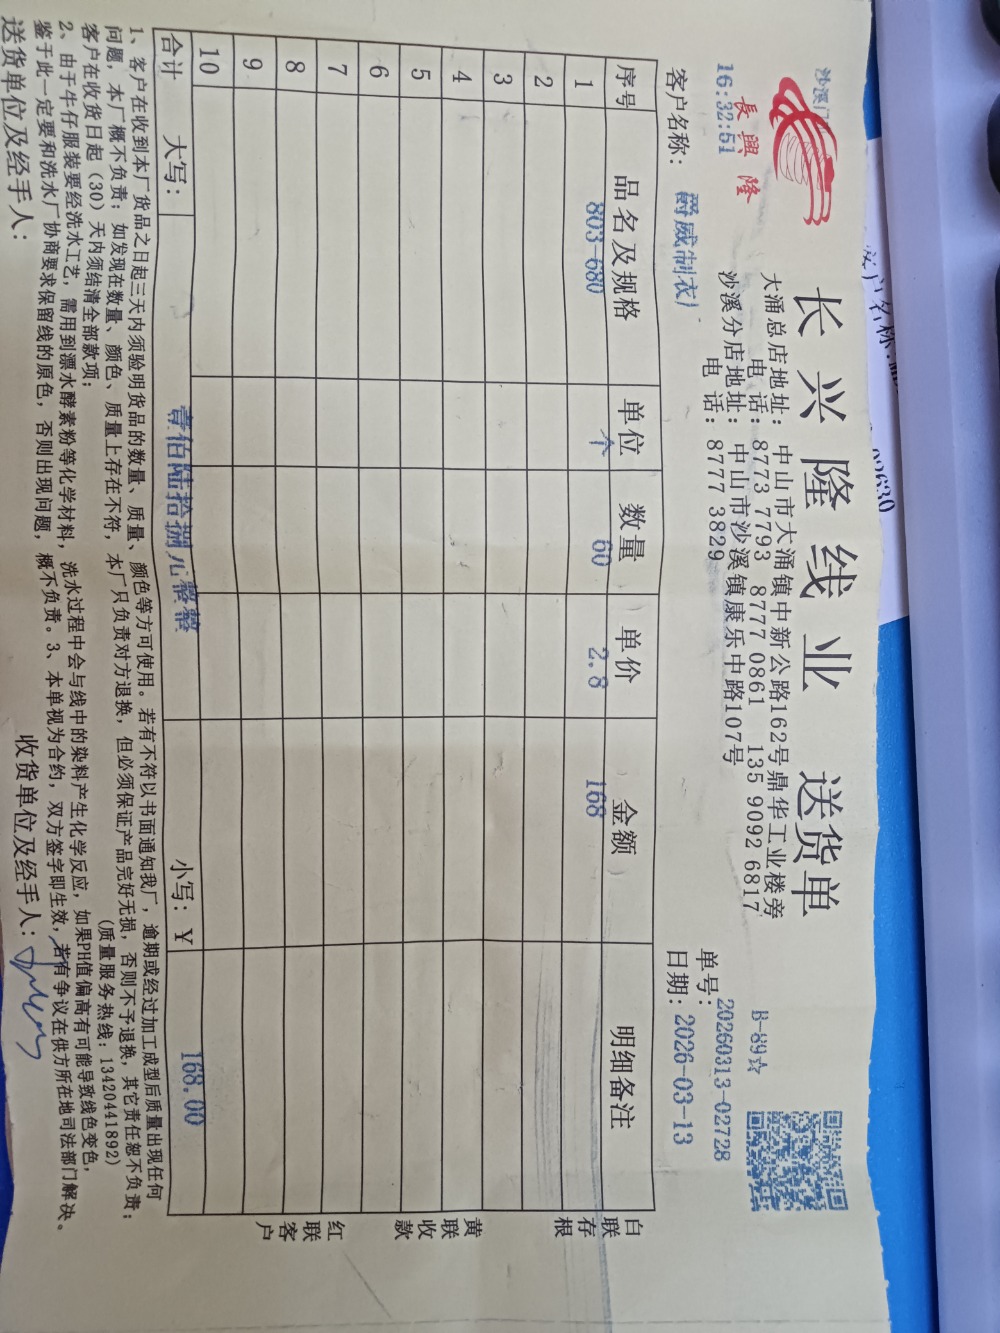 沙溪门
長興隆
长兴隆线业 送货单
大涌总店地址：中山市大涌镇中新公路162号鼎华工业楼旁
电 话：8773 7793 8777 0861 135 9092 6817
沙溪分店地址：中山市沙溪镇康乐中路107号
电 话：8777 3829
B-89☆
16:32:51
单号：20260313-02728
客户名称：爵威制衣厂
日期：2026-03-13
序号 品名及规格 单位 数量 单价 金额 明细备注
1 803-680 个 60 2.8 168
2
3
4
5
6
7
8
9
10
合计 大写：壹佰陆拾捌元整整 小写：¥ 168.00
白联存根
黄联收款
红联客户
1、客户在收到本厂货品之日起三天内须验明货品的数量、质量、颜色等方可使用。若有不符以书面通知我厂，逾期或经过加工成型后质量出现任何
问题，本厂概不负责；如发现在数量、颜色、质量上存在不符，本厂只负责对方退换，但必须保证产品完好无损，否则不予退换，其它责任恕不负责；
客户在收货日起（30）天内须结清全部款项；（质量服务热线：13420441892）
2、由于牛仔服装要经洗水工艺，需用到漂水酵素粉等化学材料，洗水过程中会与线中的染料产生化学反应，如果PH值偏高有可能导致线色变色，
鉴于此一定要和洗水厂协商要求保留线的原色，否则出现问题，概不负责。3、本单视为合约，双方签字即生效，若有争议在供方所在地司法部门解决。
送货单位及经手人： 收货单位及经手人：
客户名称:
02630